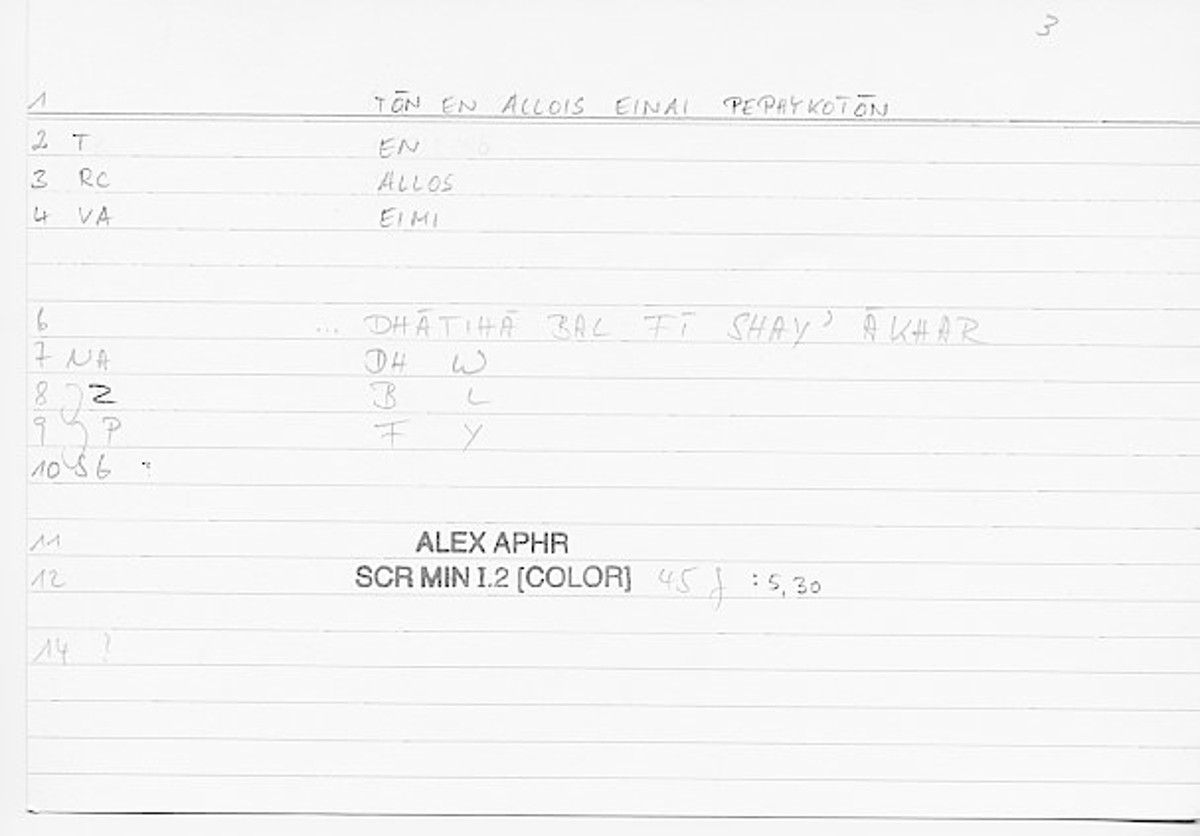 3
1 TŌN EN ALLOIS EINAI PEPHYKOTŌN
2 T EN
3 RC ALLOS
4 VA EIMI
6 ... DHĀTIHĀ BAL FĪ SHAY' ĀKHAR
7 NA DH W
8 Z B L
9 P F Y
10 S6 :
11 ALEX APHR
12 SCR MIN I.2 [COLOR] 45 f :5,30
14 ?